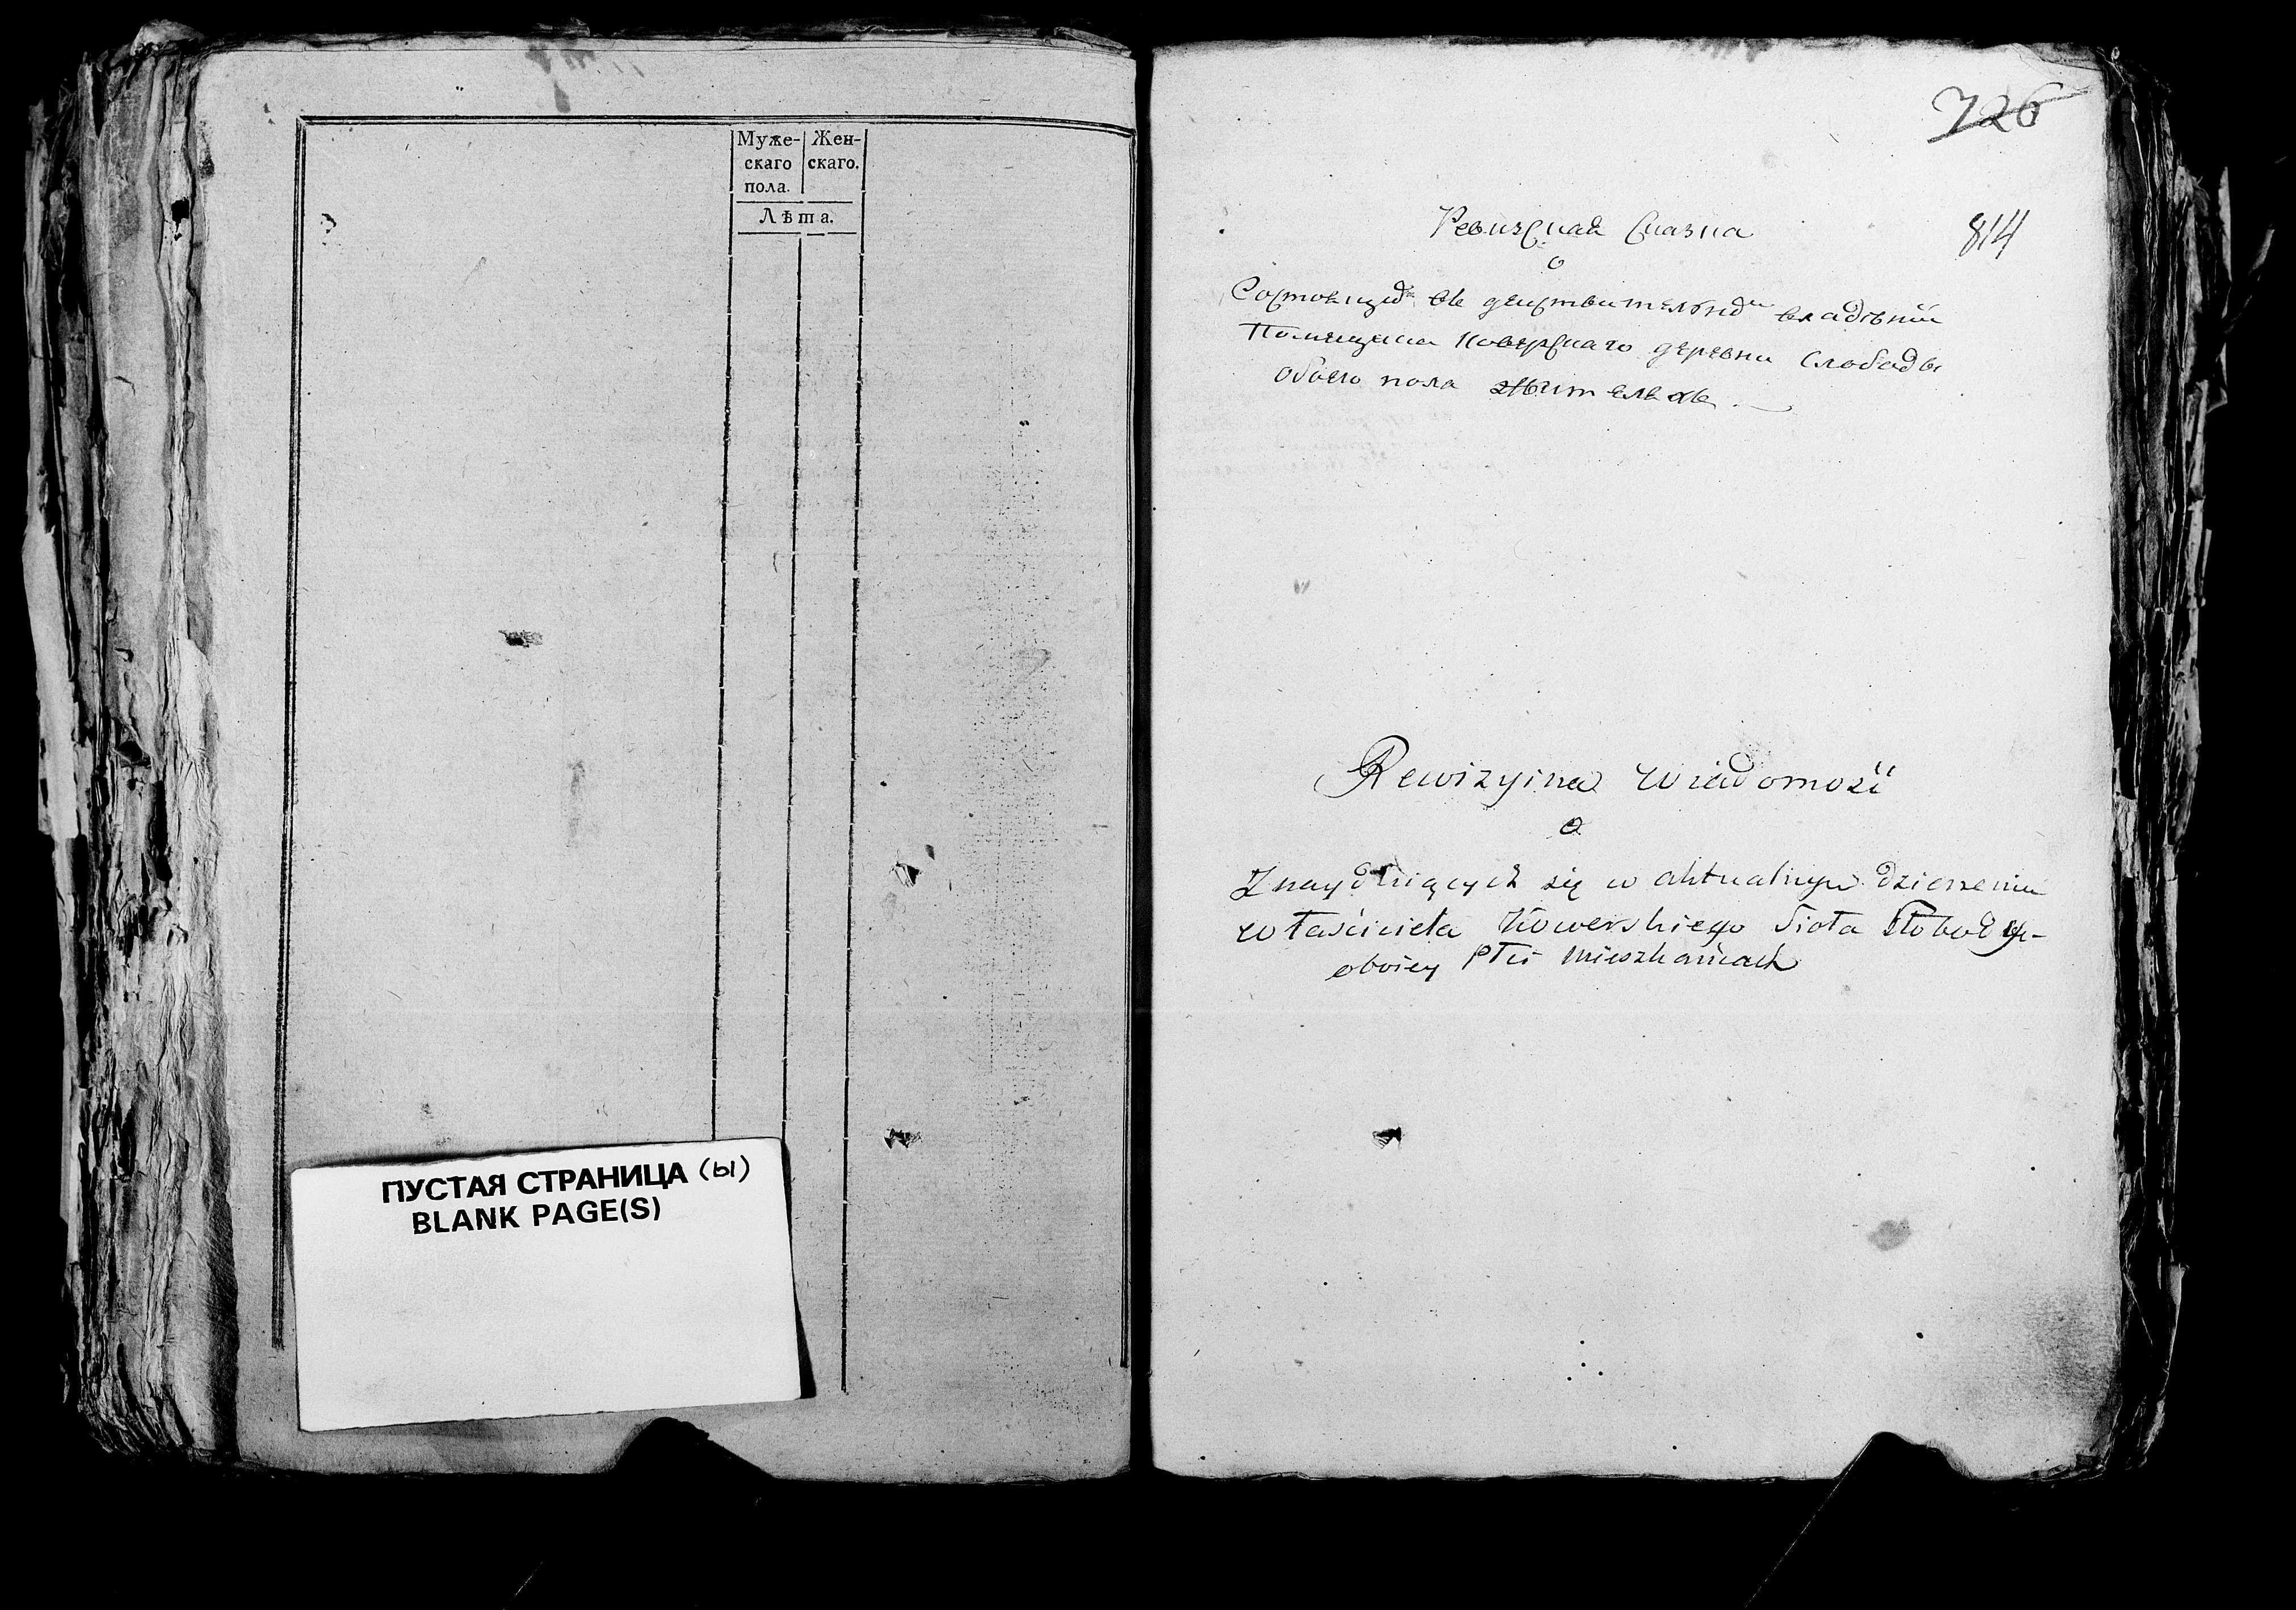 Муже-
скаго
пола.
Жен-
скаго.
Лѣта.
ПУСТАЯ СТРАНИЦА (ы)
BLANK PAGE(S)
726
814
Ревизская Сказка
о
Состоящих въ действительном владѣнии
Помещика Коверскаго деревни Слободы
обоего пола жителяхъ
Rewizyina Wiadomość
o
Znayduiących się w aktualnym dzierzeniu
właściciela Kowerskiego Sioła Słobody-
oboiey płci mieszkańcach